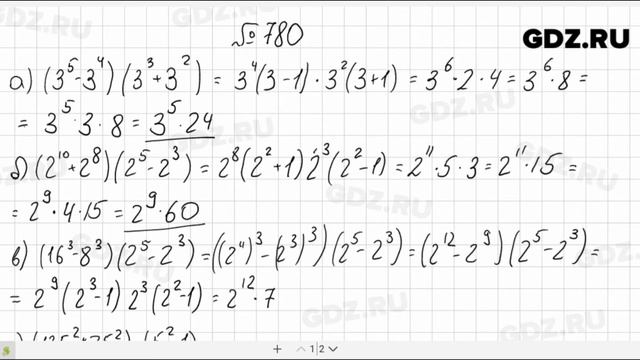 № 780
GDZ.RU
а) (3⁵-3⁴)(3³+3²) = 3⁴(3-1)·3²(3+1) = 3⁶·2·4 = 3⁶·8 =
= 3⁵·3·8 = 3⁵·24
б) (2¹⁰+2⁸)(2⁵-2³) = 2⁸(2²+1)2³(2²-1) = 2¹¹·5·3 = 2¹¹·15 =
= 2⁹·4·15 = 2⁹·60
в) (16³-8³)(2⁵-2³) = ((2⁴)³-(2³)³)(2⁵-2³) = (2¹²-2⁹)(2⁵-2³) =
= 2⁹(2³-1)2³(2²-1) = 2¹²·7
1|2